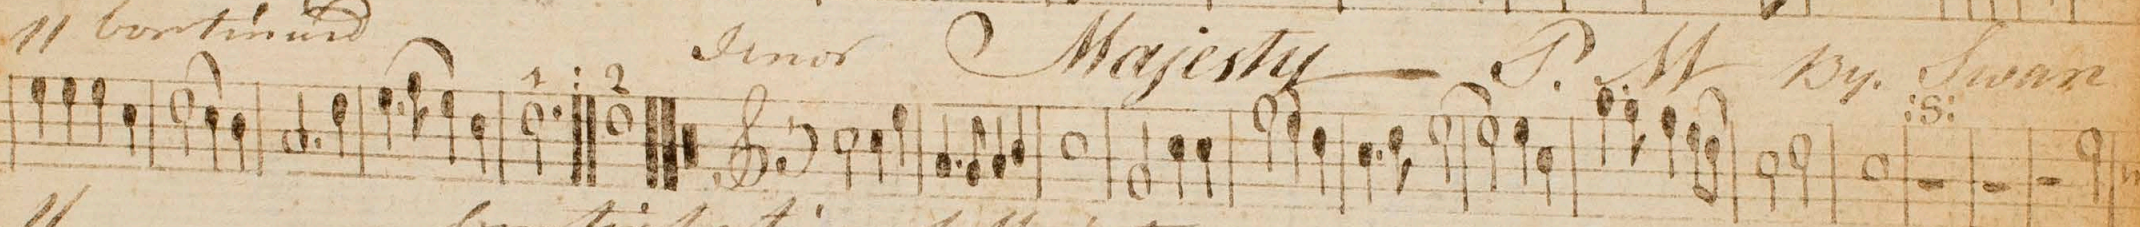 11 continued Tenor Majesty P. M By. Swan
1 2
:S:
11